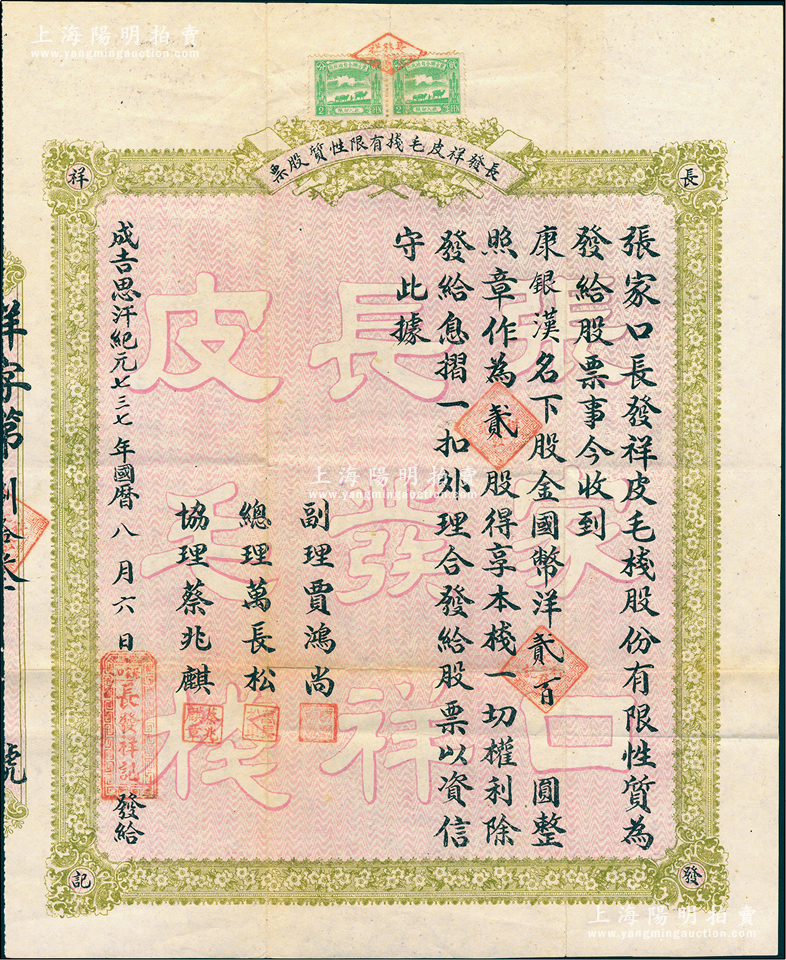 上海陽明拍賣
www.yangmingauction.com
上海陽明拍賣
www.yangmingauction.com
長發祥皮毛棧有限性質股票
長
發
祥
記
張家口長發祥皮毛棧股份有限性質為
發給股票事今收到
康銀漢名下股金國幣洋貳百圓整
照章作為貳股得享本棧一切權利除
發給息摺一扣外理合發給股票以資信
守此據
副理賈鴻尚
總理萬長松
協理蔡兆麒
成吉思汗紀元七三七年國曆八月六日
發給
長發祥記
張家口
長發祥
皮毛棧
祥字第
號
上海陽明拍賣
www.yangmingauction.com
上海陽明拍賣
www.yangmingauction.com